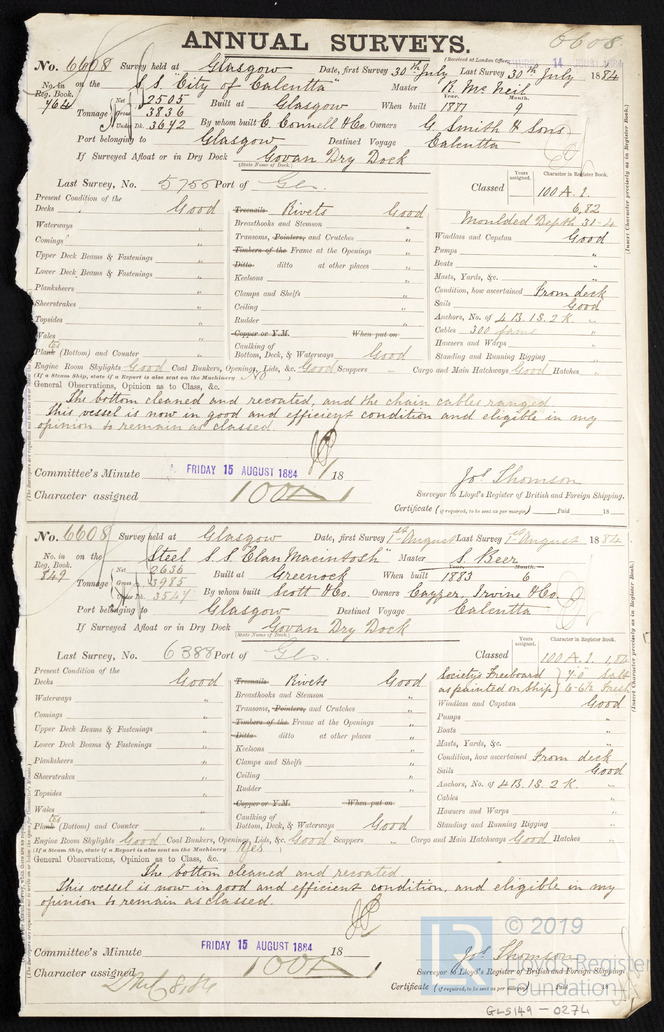 ANNUAL SURVEYS.
6608
(Received at London Office, 14 AUGUST 1884
No. 6608 Survey held at Glasgow Date, first Survey 30th July Last Survey 30th July 1884
No. in Reg. Book. 764 on the S.S. "City of Calcutta" Master R. McNeil
Tonnage Net 2505 Gross 3836 Under Dk. 3642 Built at Glasgow When built Year. 1881 Month. 9
By whom built C. Connell & Co. Owners G. Smith & Sons
Port belonging to Glasgow Destined Voyage Calcutta
If Surveyed Afloat or in Dry Dock Govan Dry Dock
(State Name of Dock.)
Last Survey, No. 5755 Port of Gls. Classed Years assigned. Character in Register Book. 100 A. 1.
6,82
Moulded Depth 31-4
Present Condition of the
Decks Good
Waterways "
Comings "
Upper Deck Beams & Fastenings "
Lower Deck Beams & Fastenings "
Planksheers "
Sheerstrakes "
Topsides "
Wales "
Plank (Bottom) and Counter "
Treenails Rivets Good
Breasthooks and Stemson "
Transoms, Pointers, and Crutches "
Timbers of the Frame at the Openings "
Ditto ditto at other places "
Keelsons "
Clamps and Shelfs "
Ceiling "
Rudder "
Copper or Y.M. When put on
Caulking of
Bottom, Deck, & Waterways Good
Windlass and Capstan Good
Pumps "
Boats "
Masts, Yards, &c. "
Condition, how ascertained From deck
Sails Good
Anchors, No. of 4 B. 1 S. 2 K. "
Cables 300 fams "
Hawsers and Warps "
Standing and Running Rigging "
Engine Room Skylights Good Coal Bunkers, Openings, Lids, &c. Good Scuppers " Cargo and Main Hatchways Good Hatches "
(If a Steam Ship, state if a Report is also sent on the Machinery No.)
General Observations, Opinion as to Class, &c.
The bottom cleaned and recoated, and the chain cables ranged.
This vessel is now in good and efficient condition and eligible in my
opinion to remain as classed.
Committee's Minute FRIDAY 15 AUGUST 1884 18
Jos. Thomson
Character assigned 100 A 1
Surveyor to Lloyd's Register of British and Foreign Shipping.
Certificate (if required, to be sent as per margin) Paid 18
(Insert Character precisely as in Register Book.)
No. 6608 Survey held at Glasgow Date, first Survey 1st August Last Survey 1st August 1884
No. in Reg. Book. 849 on the Steel S.S. "Clan Macintosh" Master S. Beer
Tonnage Net 2636 Gross 3985 Under Dk. 3547 Built at Greenock When built Year. 1883 Month. 6
By whom built Scott & Co. Owners Cayzer, Irvine & Co.
Port belonging to Glasgow Destined Voyage Calcutta
If Surveyed Afloat or in Dry Dock Govan Dry Dock
(State Name of Dock.)
Last Survey, No. 6388 Port of Gls. Classed Years assigned. Character in Register Book. 100 A. 1. 1,84
Society's Freeboard
as painted on ship
Present Condition of the
Decks Good
Waterways "
Comings "
Upper Deck Beams & Fastenings "
Lower Deck Beams & Fastenings "
Planksheers "
Sheerstrakes "
Topsides "
Wales "
Plank (Bottom) and Counter "
Treenails Rivets Good
Breasthooks and Stemson "
Transoms, Pointers, and Crutches "
Timbers of the Frame at the Openings "
Ditto ditto at other places "
Keelsons "
Clamps and Shelfs "
Ceiling "
Rudder "
Copper or Y.M. When put on
Caulking of
Bottom, Deck, & Waterways Good
Windlass and Capstan Good
Pumps "
Boats "
Masts, Yards, &c. "
Condition, how ascertained From deck
Sails Good
Anchors, No. of 4 B. 1 S. 2 K. "
Cables "
Hawsers and Warps "
Standing and Running Rigging "
Engine Room Skylights Good Coal Bunkers, Openings, Lids, &c. Good Scuppers " Cargo and Main Hatchways Good Hatches "
(If a Steam Ship, state if a Report is also sent on the Machinery Yes)
General Observations, Opinion as to Class, &c.
The bottom cleaned and recoated.
This vessel is now in good and efficient condition, and eligible in my
opinion to remain as classed.
Committee's Minute FRIDAY 15 AUGUST 1884 18
Jos. Thomson
Character assigned 100 A 1
Surveyor to Lloyd's Register of British and Foreign Shipping.
Certificate (if required, to be sent as per margin) Paid 18
(Insert Character precisely as in Register Book.)
© 2019
Lloyd's Register
Foundation
GLS149-0274